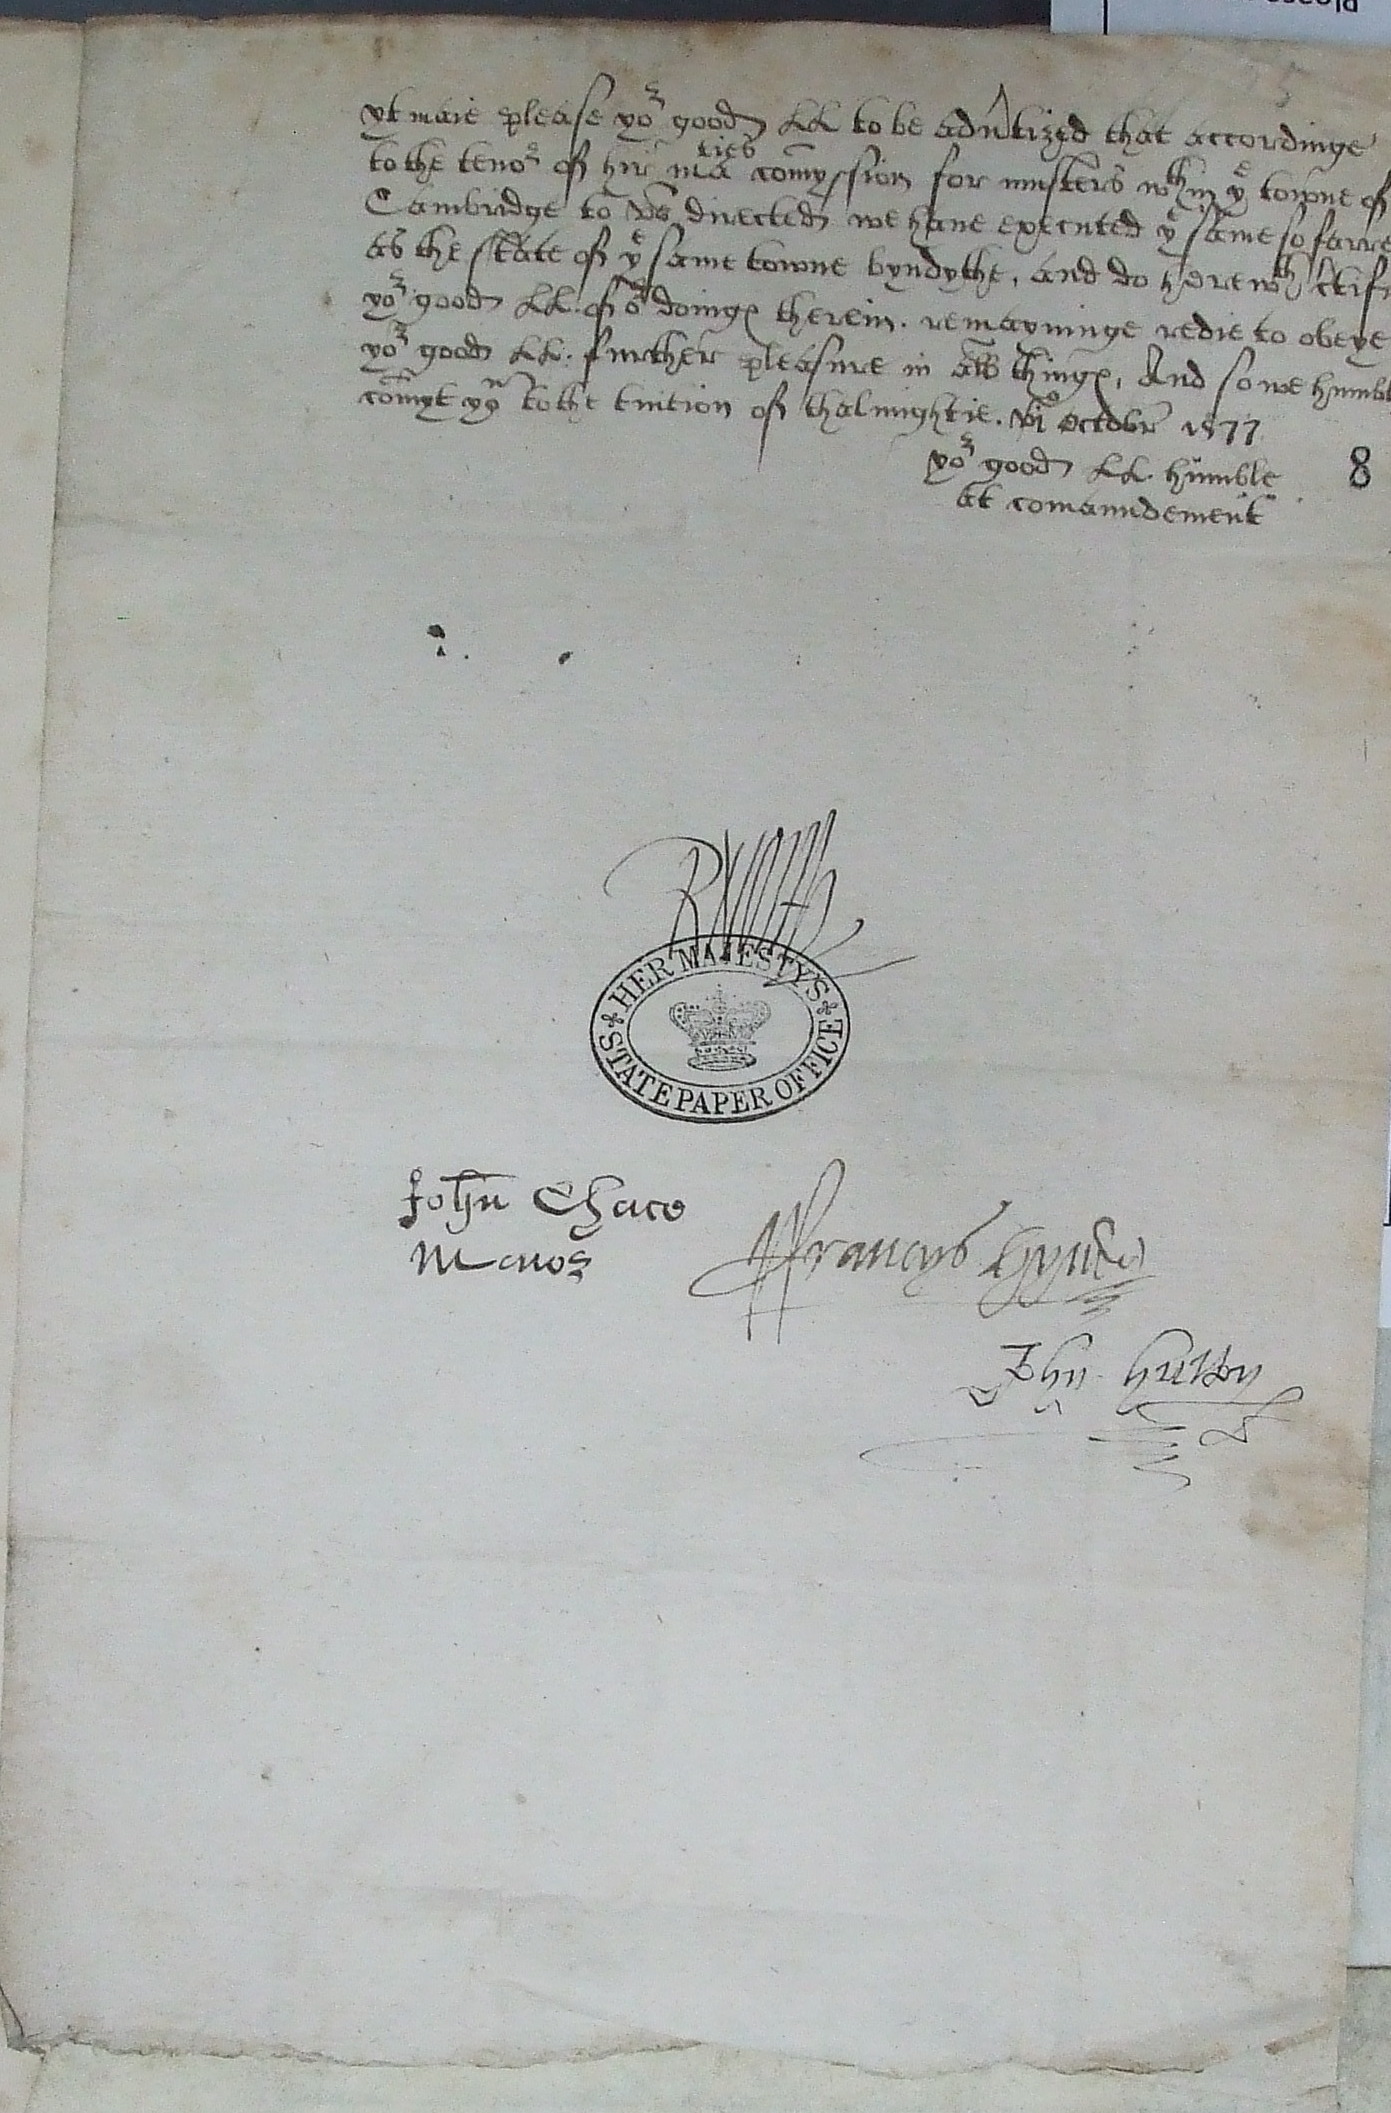 yt maie please yor good LL to be adu'tized that accordinge
to the tenor of hir maties comyssion for musters wthin ye towne of
Cambridge to vs directed we haue executed ye same so farre
as the state of ye same towne byndythe, and do herewth c'tifi
yor good LL. of or doings therein. remayninge redie to obeye
yor good LL. further pleasure in all things, And so we humbl
comyt yow to the tuition of thalmightie. vjo Octobr 1577
yor good LL. humble
at comaundement
8
R North
HER MAJESTY'S
STATE PAPER OFFICE
John Chace
Maior
ffrancys Hynde
John Hutton